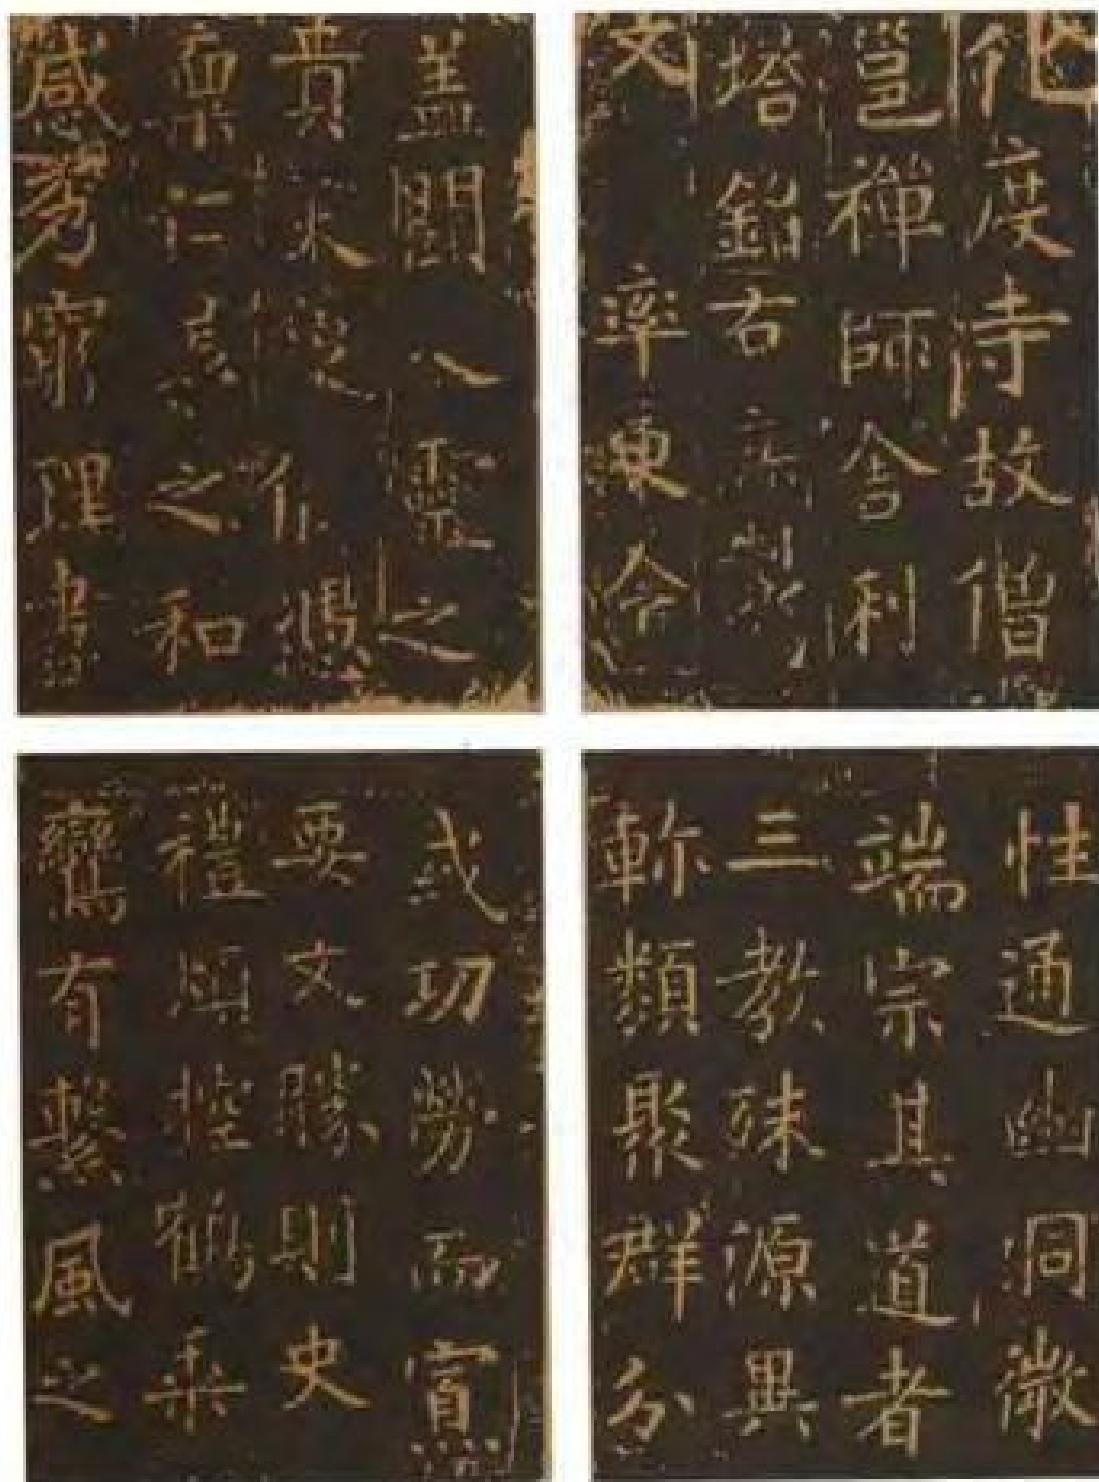 化度寺故僧
邕禪師舍利
塔銘右
文率更令
蓋聞人靈之
貴天象攸憑
稟仁義之和
感秀窮理盡
性通幽洞微
端宗其道者
三教殊源異
軫類聚群分
或功勞而寡
要文勝則史
禮煩控鶴乘
鸞有繫風之